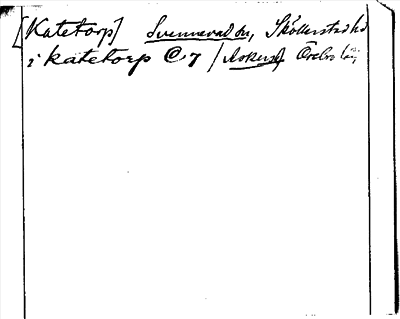 [Katetorp] Svennevad sn, Sköllersta hd
i katetorp @ 7 / Askers hd Örebro län